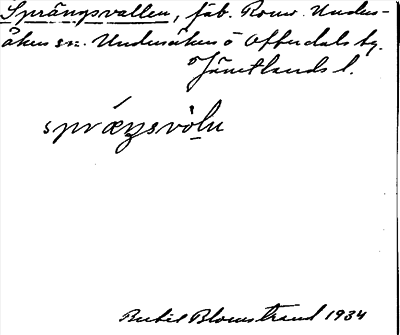 Sprängsvallen, fäb. Komm. Unders-
åkers sn. Undersåkers o Offerdals tg.
Jämtlands l.
spræŋsvòln
Bertil Blomstrand 1934